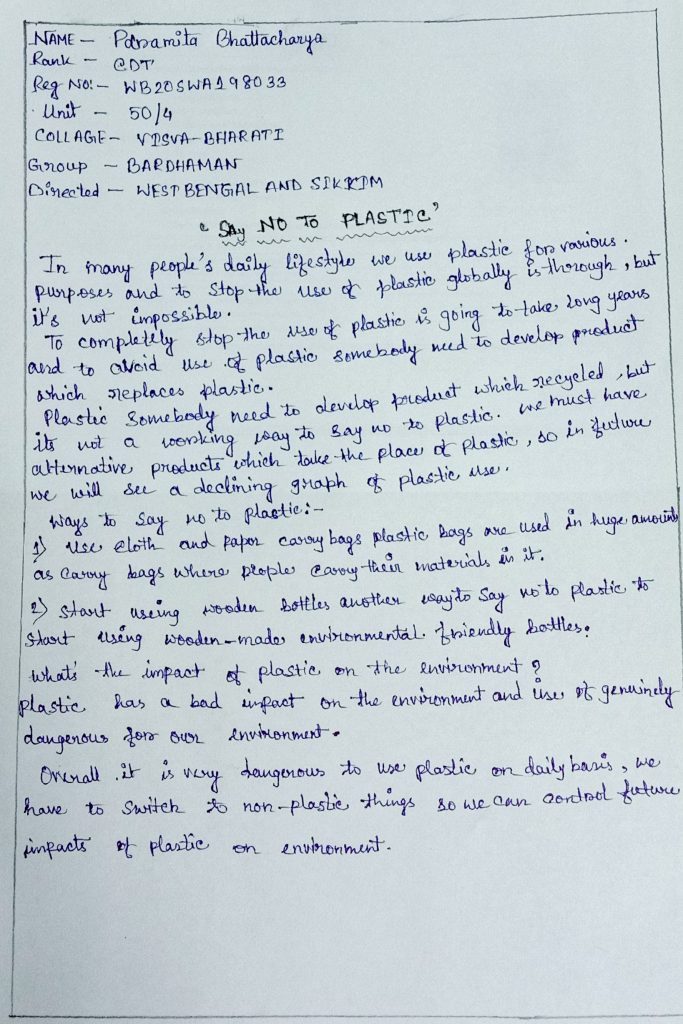 NAME - Paramita Bhattacharya
Rank - CDT
Reg No:- WB20SWA198033
Unit - 50/4
COLLAGE- VISVA-BHARATI
Group - BARDHAMAN
Directed - WEST BENGAL AND SIKKIM
"Say NO TO PLASTIC"
In many people's daily lifestyle we use plastic for various.
purposes and to stop the use of plastic globally is through, but
it's not impossible.
To completely stop the use of plastic is going to take long years
and to avoid use of plastic somebody need to develop product
which replaces plastic.
Plastic Somebody need to develop product which recycled, but
its not a working way to say no to plastic. we must have
alternative products which take the place of plastic, so in future
we will see a declining graph of plastic use.
Ways to say no to plastic:-
1) Use cloth and paper carry bags plastic bags are used in huge amounts
as carry bags where people carry their materials in it.
2) Start useing wooden bottles another way to say no to plastic to
start using wooden-made environmental friendly bottles.
What's the impact of plastic on the environment?
plastic has a bad impact on the environment and use of genuinely
dangerous for our environment.
Overall it is very dangerous to use plastic on daily basis, we
have to switch to non-plastic things so we can control future
impacts of plastic on environment.